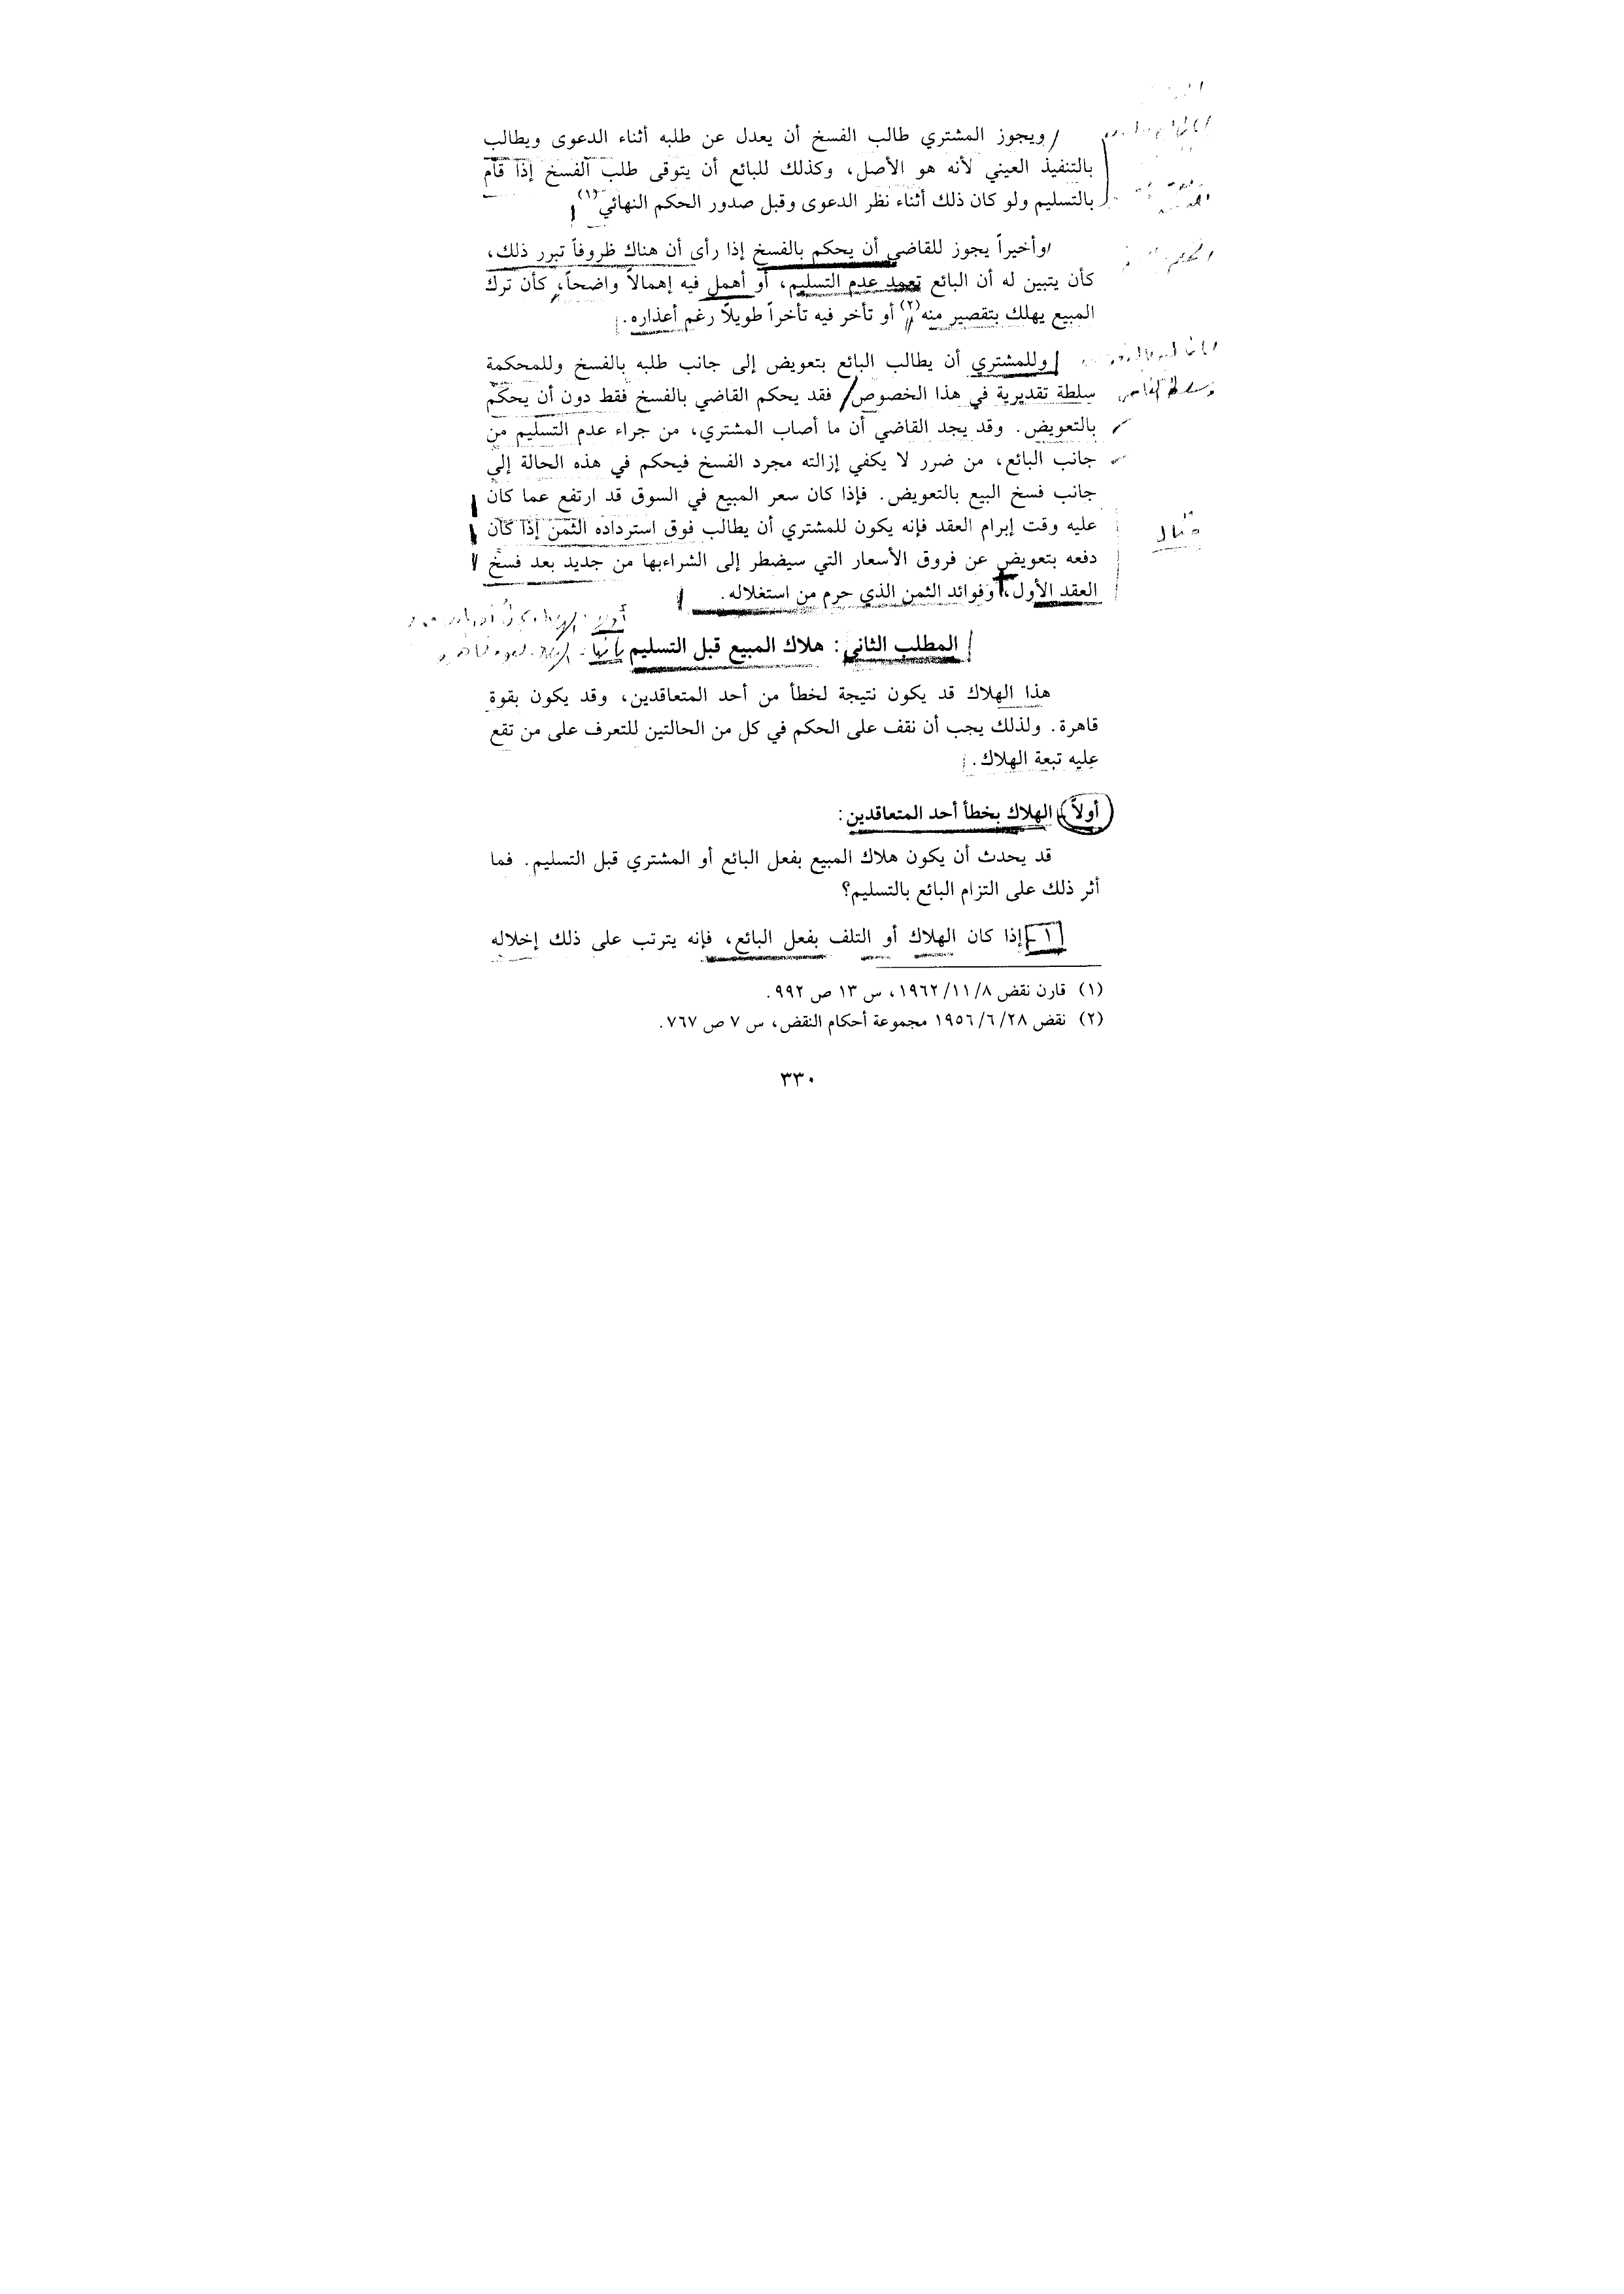 ويجوز المشتري طالب الفسخ أن يعدل عن طلبه أثناء الدعوى ويطالب
بالتنفيذ العيني لأنه هو الأصل، وكذلك للبائع أن يتوقى طلب الفسخ إذا قام
بالتسليم ولو كان ذلك أثناء نظر الدعوى وقبل صدور الحكم النهائي(١)
وأخيراً يجوز للقاضي أن يحكم بالفسخ إذا رأى أن هناك ظروفاً تبرر ذلك،
كأن يتبين له أن البائع تعمد عدم التسليم، أو أهمل فيه إهمالاً واضحاً، كأن ترك
المبيع يهلك بتقصير منه(٢) أو تأخر فيه تأخراً طويلاً رغم أعذاره.
وللمشتري أن يطالب البائع بتعويض إلى جانب طلبه بالفسخ وللمحكمة
سلطة تقديرية في هذا الخصوص فقد يحكم القاضي بالفسخ فقط دون أن يحكم
بالتعويض. وقد يجد القاضي أن ما أصاب المشتري، من جراء عدم التسليم من
جانب البائع، من ضرر لا يكفي إزالته مجرد الفسخ فيحكم في هذه الحالة إلى
جانب فسخ البيع بالتعويض. فإذا كان سعر المبيع في السوق قد ارتفع عما كان
عليه وقت إبرام العقد فإنه يكون للمشتري أن يطالب فوق استرداده الثمن إذا كان
مثال
دفعه بتعويض عن فروق الأسعار التي سيضطر إلى الشراءبها من جديد بعد فسخ
العقد الأول، وفوائد الثمن الذي حرم من استغلاله.
المطلب الثاني: هلاك المبيع قبل التسليم
هذا الهلاك قد يكون نتيجة لخطأ من أحد المتعاقدين، وقد يكون بقوة
قاهرة. ولذلك يجب أن نقف على الحكم في كل من الحالتين للتعرف على من تقع
عليه تبعة الهلاك.
أولاً - الهلاك بخطأ أحد المتعاقدين:
قد يحدث أن يكون هلاك المبيع بفعل البائع أو المشتري قبل التسليم. فما
أثر ذلك على التزام البائع بالتسليم؟
١ - إذا كان الهلاك أو التلف بفعل البائع، فإنه يترتب على ذلك إخلاله
(١) قارن نقض ٨/١١/١٩٦٢، س ١٣ ص ٩٩٢.
(٢) نقض ٢٨/٦/١٩٥٦ مجموعة أحكام النقض، س ٧ ص ٧٦٧.
٣٣٠